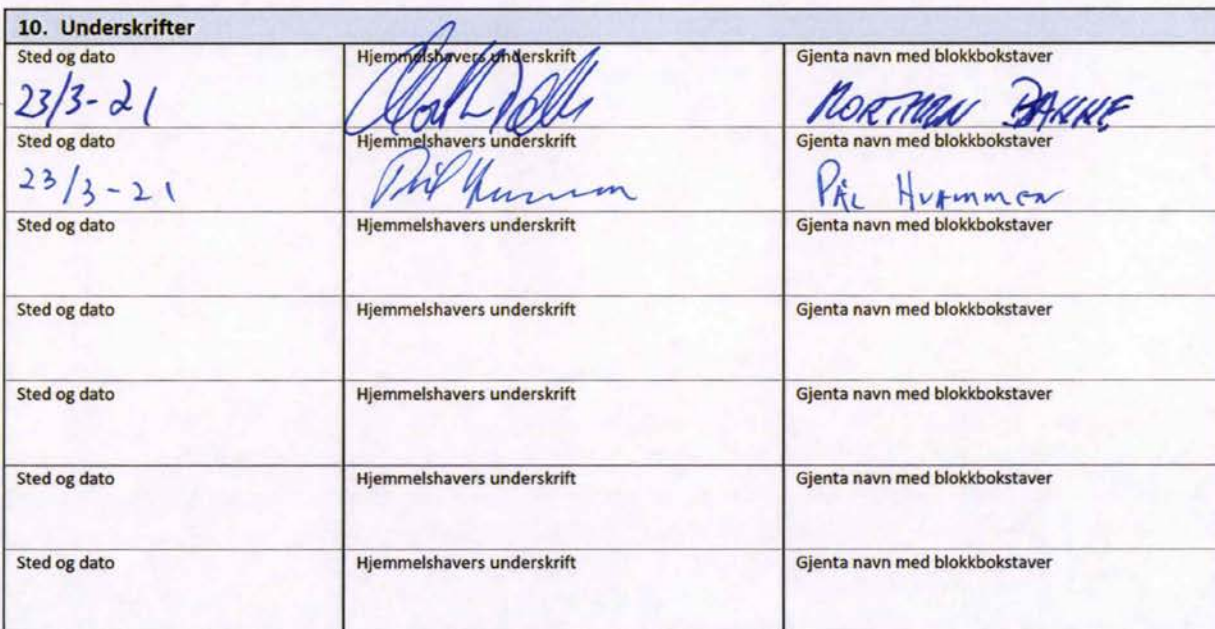 10. Underskrifter
Sted og dato Hjemmelshavers underskrift Gjenta navn med blokkbokstaver
23/3-21
Sted og dato Hjemmelshavers underskrift Gjenta navn med blokkbokstaver
23/3-21 Pål Hvammen PÅL HVAMMEN
Sted og dato Hjemmelshavers underskrift Gjenta navn med blokkbokstaver
Sted og dato Hjemmelshavers underskrift Gjenta navn med blokkbokstaver
Sted og dato Hjemmelshavers underskrift Gjenta navn med blokkbokstaver
Sted og dato Hjemmelshavers underskrift Gjenta navn med blokkbokstaver
Sted og dato Hjemmelshavers underskrift Gjenta navn med blokkbokstaver